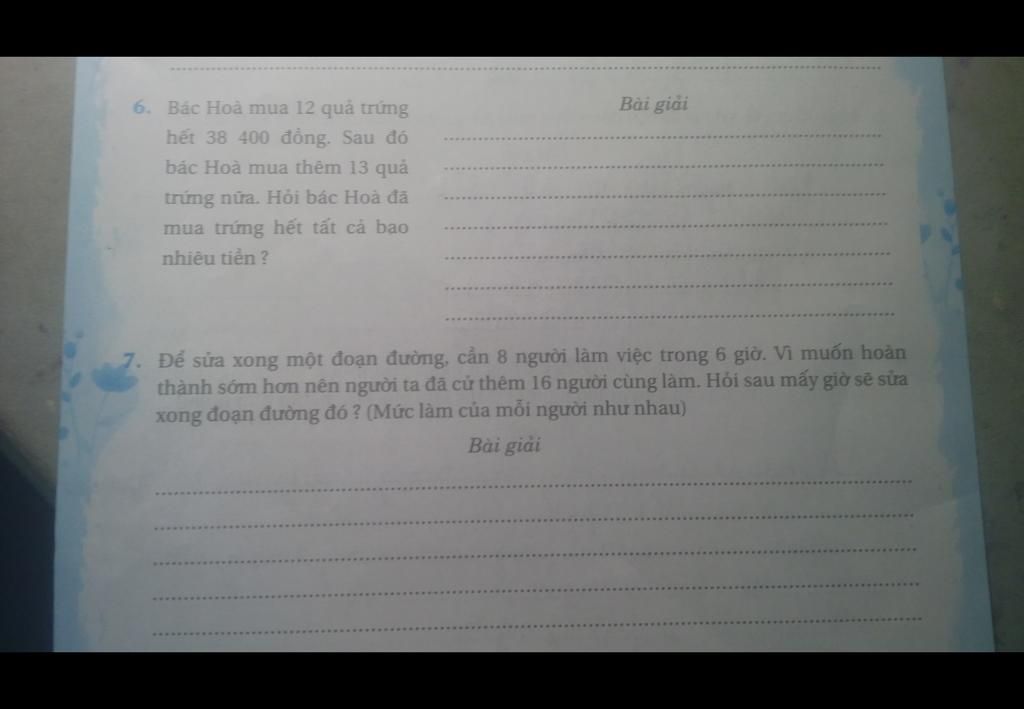 6. Bác Hoà mua 12 quả trứng
hết 38 400 đồng. Sau đó
bác Hoà mua thêm 13 quả
trứng nữa. Hỏi bác Hoà đã
mua trứng hết tất cả bao
nhiêu tiền ?
Bài giải
7. Để sửa xong một đoạn đường, cần 8 người làm việc trong 6 giờ. Vì muốn hoàn
thành sớm hơn nên người ta đã cử thêm 16 người cùng làm. Hỏi sau mấy giờ sẽ sửa
xong đoạn đường đó ? (Mức làm của mỗi người như nhau)
Bài giải